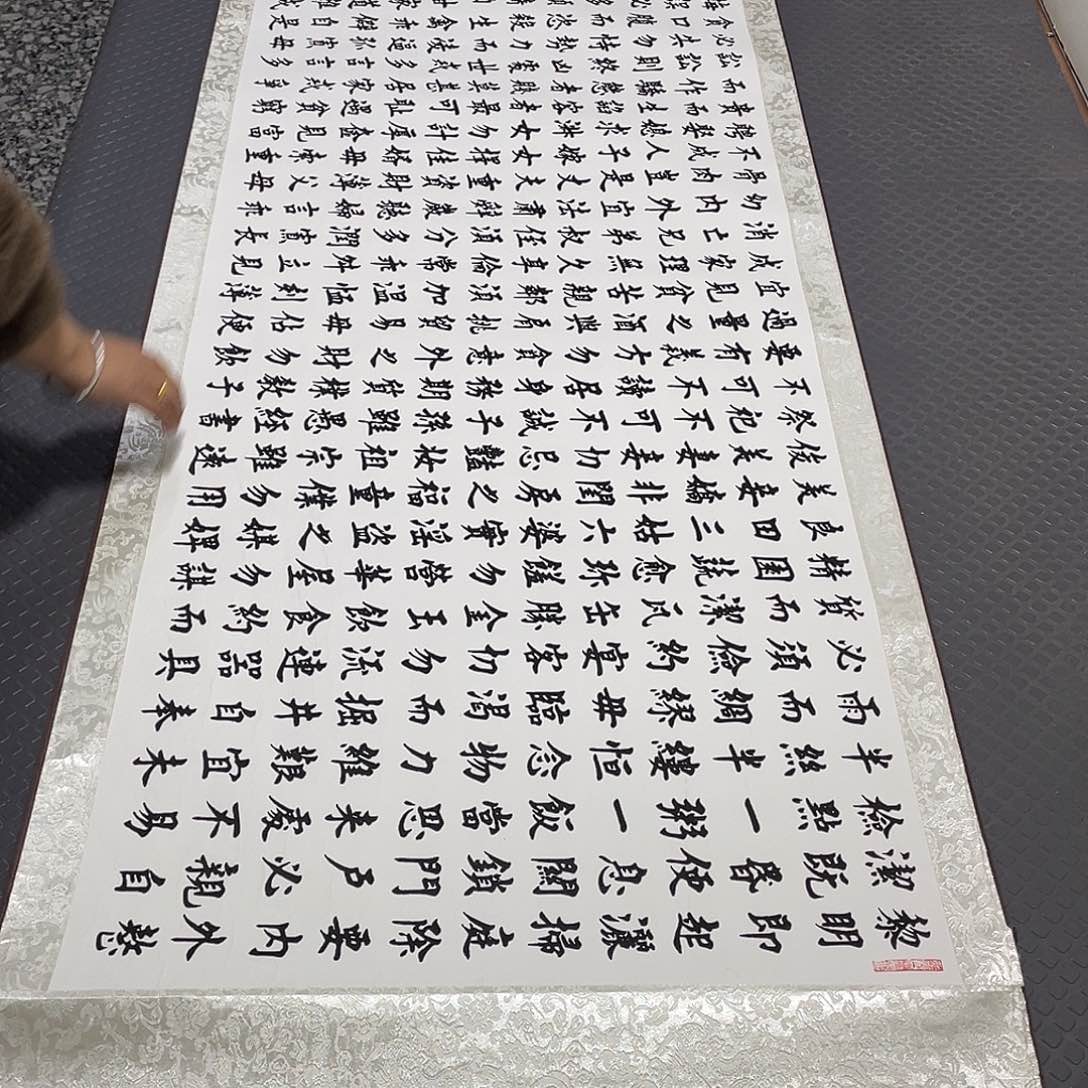 黎明即起灑掃庭除要內外整
潔既昏便息關鎖門戶必親自
檢點一粥一飯當思來處不易
半絲半縷恒念物力維艱宜未
雨而綢繆毋臨渴而掘井自奉
必須儉約宴客切勿流連器具
質而潔瓦缶勝金玉飲食約而
精園蔬愈珍饈勿營華屋勿謀
良田三姑六婆實淫盜之媒婢
美妾嬌非閨房之福童僕勿用
俊美妻妾切忌豔妝祖宗雖遠
祭祀不可不誠子孫雖愚經書
不可不讀居身務期質樸教子
要有義方勿貪意外之財勿飲
過量之酒與肩挑貿易毋佔便
宜見貧苦親鄰須加溫恤刻薄
成家理無久享倫常乖舛立見
消亡兄弟叔侄須分多潤寡長
幼內外宜法肅辭嚴聽婦言乖
骨肉豈是丈夫重資財薄父母
不成人子嫁女擇佳婿毋索重
聘娶媳求淑女勿計厚奩見富
貴而生諂容者最可恥遇貧窮
而作驕態者賤莫甚居家戒爭
訟訟則終凶處世戒多言言多
必失勿恃勢力而凌逼孤寡毋
貪口腹而恣殺生禽乖僻自是